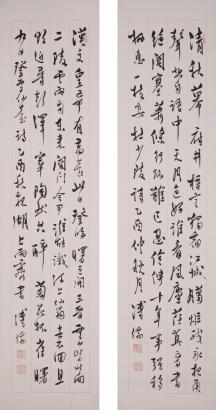 清秋幕府井梧寒獨宿江城蠟炬殘永夜角
聲悲自語中天月色好誰看風塵荏苒音書
絕關塞蕭條行路難已忍伶俜十年事強移
棲息一枝安杜少陵詩乙酉仲秋月溥儒
漢文皇帝有高臺此日登臨曙色開三晉雲山皆北向
二陵風雨自東來關門令尹誰能識河上仙翁去不回且
欲近尋彭澤宰陶然共醉菊花杯崔曙
九日登望仙臺詩乙酉秋湖上雨霽書溥儒